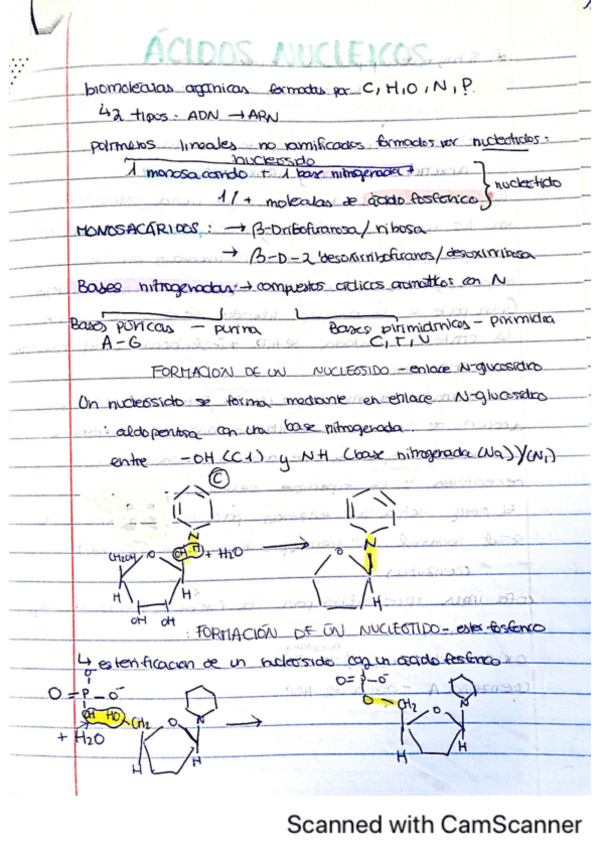 ÁCIDOS NUCLEICOS
biomoléculas orgánicas formadas por C, H, O, N, P.
↳ 2 tipos. ADN → ARN
polímeros lineales no ramificados formados por nucleótidos:
nucleósido
1 monosacárido + 1 base nitrogenada +
1/+ moléculas de ácido fosfórico } nucleótido
MONOSACÁRIDOS: → β-D ribofuranosa/ribosa
→ β-D-2'desoxirribofuranos/desoxirribosa
Bases nitrogenadas: → compuestos cíclicos aromáticos con N
Bases púricas — purina Bases pirimidínicas — pirimidina
A-G C, T, U
FORMACIÓN DE UN NUCLEÓSIDO - enlace N-glucosídico
Un nucleósido se forma mediante en enlace N-glucosídico
: aldopentosa con una base nitrogenada.
entre -OH (C1) y NH (base nitrogenada (Na) Y (N1)
C
N N
CH2OH O OH H + H2O → O
H H H
OH OH
: FORMACIÓN DE UN NUCLEÓTIDO - ester fosfórico
↳ esterificación de un nucleósido con un ácido fosfórico
O⁻ O=P-O⁻
O=P-O⁻ O CH2 O N
OH HO CH2 O N →
+ H2O H H H H
Scanned with CamScanner